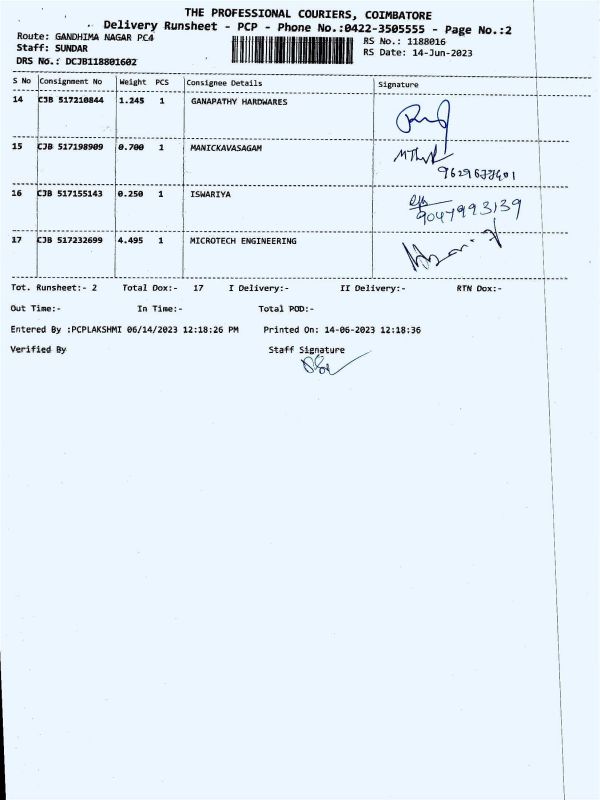 THE PROFESSIONAL COURIERS, COIMBATORE
Delivery Runsheet - PCP - Phone No.:0422-3505555 - Page No.:2
Route: GANDHIMA NAGAR PC4
RS No.: 1188016
Staff: SUNDAR
RS Date: 14-Jun-2023
DRS No.: DCJB118801602
S No Consignment No Weight PCS Consignee Details Signature
14 CJB 517210844 1.245 1 GANAPATHY HARDWARES
15 CJB 517198909 0.700 1 MANICKAVASAGAM
16 CJB 517155143 0.250 1 ISWARIYA
9047993139
17 CJB 517232699 4.495 1 MICROTECH ENGINEERING
Tot. Runsheet:- 2 Total Dox:- 17 I Delivery:- II Delivery:- RTN Dox:-
Out Time:- In Time:- Total POD:-
Entered By :PCPLAKSHMI 06/14/2023 12:18:26 PM Printed On: 14-06-2023 12:18:36
Verified By Staff Signature